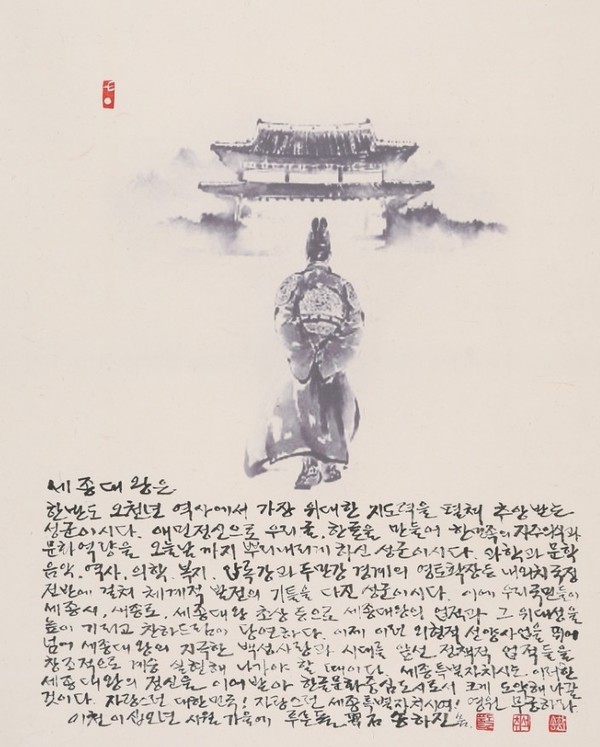 세종대왕은
한반도 오천년 역사에서 가장 위대한 지도력을 펼쳐 추앙받는
성군이시다. 애민정신으로 우리글, 한글을 만들어 한민족의 자주의식과
문화역량을 오늘날까지 뿌리내리게 하신 성군이시다. 과학과 문학
음악, 역사, 의학, 복지, 압록강과 두만강 경계의 영토확장등 내외치국정
전반에 걸쳐 체계적 발전의 기틀을 다진 성군이시다. 이에 우리국민들이
세종시, 세종로, 세종대왕 초상 등으로 세종대왕의 업적과 그 위대성을
높이 기리고 찬하드림이 당연하다. 이제 이런 외형적 선양사업을 뛰어
넘어 세종대왕의 지극한 백성사랑과 시대를 앞선 정책적 업적들을
창조적으로 계승 실현해 나가야 할 때이다. 세종특별자치시도 이러한
세종대왕의 정신을 이어받아 한글문화중심도시로서 크게 도약해 나갈
것이다. 자랑스런 대한민국! 자랑스런 세종특별자치시여! 영원 무궁하라.
이천이십오년 시월 가을에